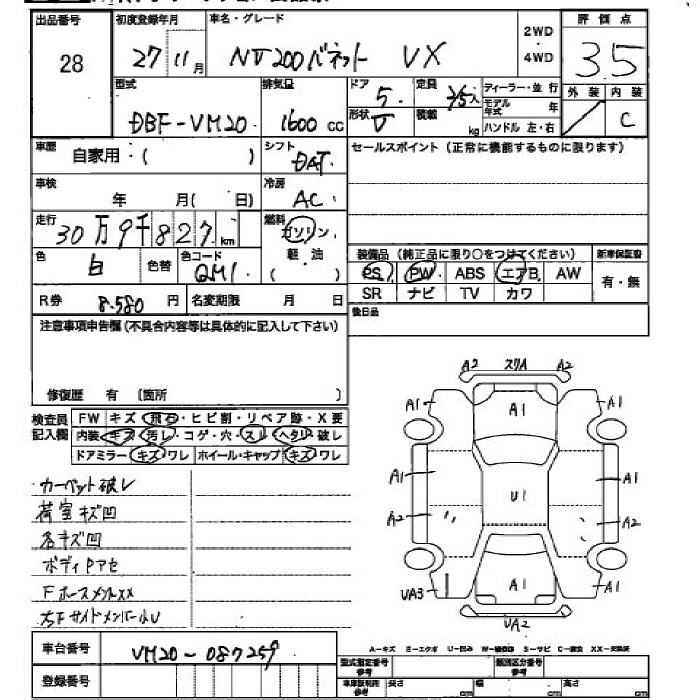 出品番号 初度登録年月 車名・グレード 2WD・4WD 評価点
28 27 11月 NV200バネット VX 3.5
型式 排気量 ドア 定員 ディーラー・並行 外装 内装
DBF-VM20 1600cc 5 2/5人 モデル年式 年 C
形状 V 積載 kg ハンドル 左・右
車歴 自家用・( ) シフト DAT セールスポイント(正常に機能するものに限ります)
車検 年 月( 日) 冷房 AC
走行 30万9千827km 燃料 ガソリン・軽油( )
色 白 色替 色コード QM1
装備品(純正品に限り○をつけてください) 新車保証書
PS PW ABS エアB AW 有・無
SR ナビ TV カワ
R券 8.580円 名変期限 月 日 後日品
注意事項申告欄(不具合内容等は具体的に記入して下さい)
修復歴 有 〔箇所 〕
検査員記入欄 FW キズ・飛石・ヒビ割・リペア跡・X要
内装・キズ・汚レ・コゲ・穴・スレ・ヘタリ・破レ
ドアミラー キズ・ワレ ホイール・キャップ キズ・ワレ
A2 スリA A2
A1 A1 A1
A1 U1 A1
A2 A2
UA3 A1 A1
UA2
カーペット破レ
荷室キズ凹
各キズ凹
ボディPアセ
Fホースメントxx
左Fサイドメンバー小U
車台番号 VM20-087259
登録番号
A-キズ E-エクボ U-凹み W-補修跡 S-サビ C-腐食 XX-交換済
型式指定番号 参考 類別区分番号 参考
長さ cm 幅 cm 高さ cm